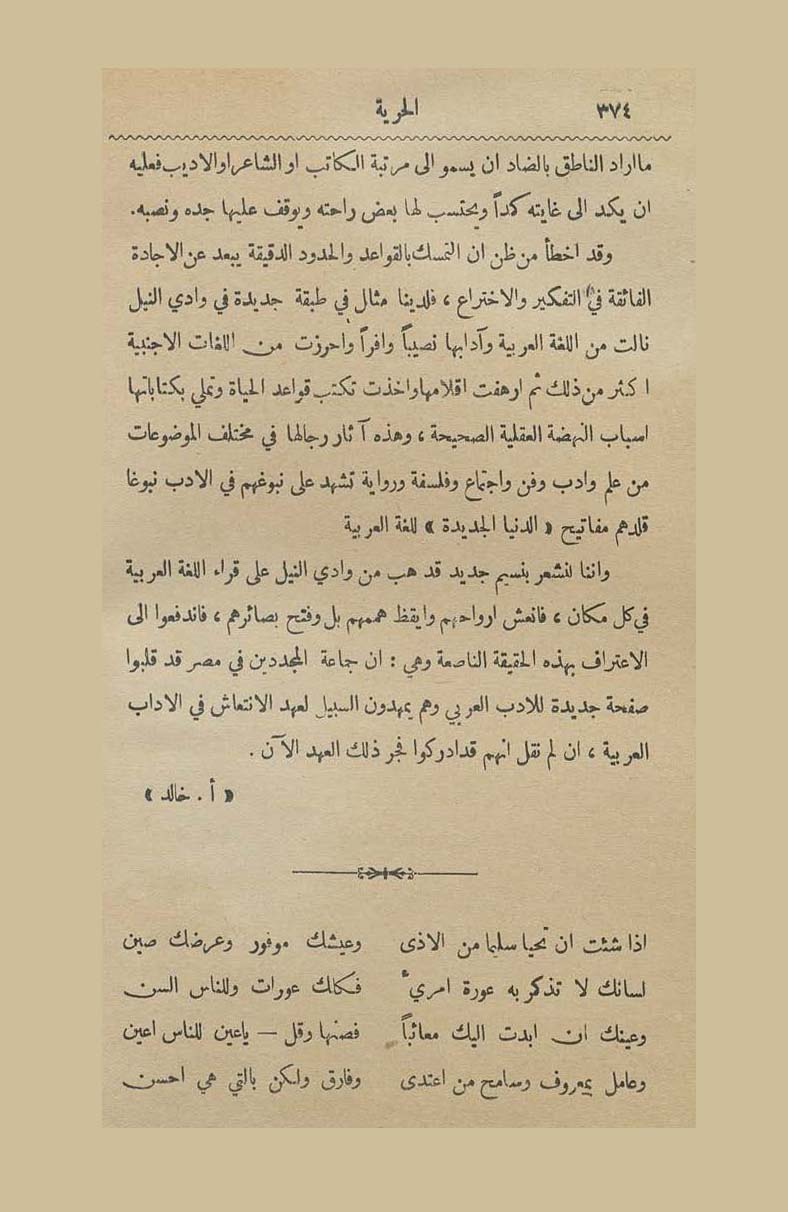 ٣٧٤
الحرية
مااراد الناطق بالضاد ان يسمو الى مرتبة الكاتب او الشاعر او الاديب فعليه
ان يكد الى غايته كداً ويحتسب لها بعض راحته ويوقف عليها جده ونصبه.
وقد اخطأ من ظن ان التمسك بالقواعد والحدود الدقيقة يبعد عن الاجادة
الفائقة في التفكير والاختراع ، فلدينا مثال في طبقة جديدة في وادي النيل
نالت من اللغة العربية وآدابها نصيباً وافراً واحرزت من اللغات الاجنبية
اكثر من ذلك ثم ارهفت اقلامها واخذت تكتب قواعد الحياة وتملي بكتاباتها
اسباب النهضة العقلية الصحيحة ، وهذه آثار رجالها في مختلف الموضوعات
من علم وادب وفن واجتماع وفلسفة ورواية تشهد على نبوغهم في الادب نبوغا
قلدهم مفاتيح « الدنيا الجديدة » للغة العربية
واننا لنشعر بنسيم جديد قد هب من وادي النيل على قراء اللغة العربية
في كل مكان ، فانعش ارواحهم وايقظ هممهم بل وفتح بصائرهم ، فاندفعوا الى
الاعتراف بهذه الحقيقة الناصعة وهي : ان جماعة المجددين في مصر قد قلبوا
صفحة جديدة للادب العربي وهم يمهدون السبيل لعهد الانتعاش في الاداب
العربية ، ان لم نقل انهم قد ادركوا فجر ذلك العهد الآن .
« أ . خالد »
اذا شئت ان تحيا سليما من الاذى وعيشك موفور وعرضك صين
لسانك لا تذكر به عورة امريء فكلك عورات وللناس السن
وعينك ان ابدت اليك معائباً فصنها وقل — ياعين للناس اعين
وعامل بمعروف وسامح من اعتدى وفارق ولكن بالتي هي احسن